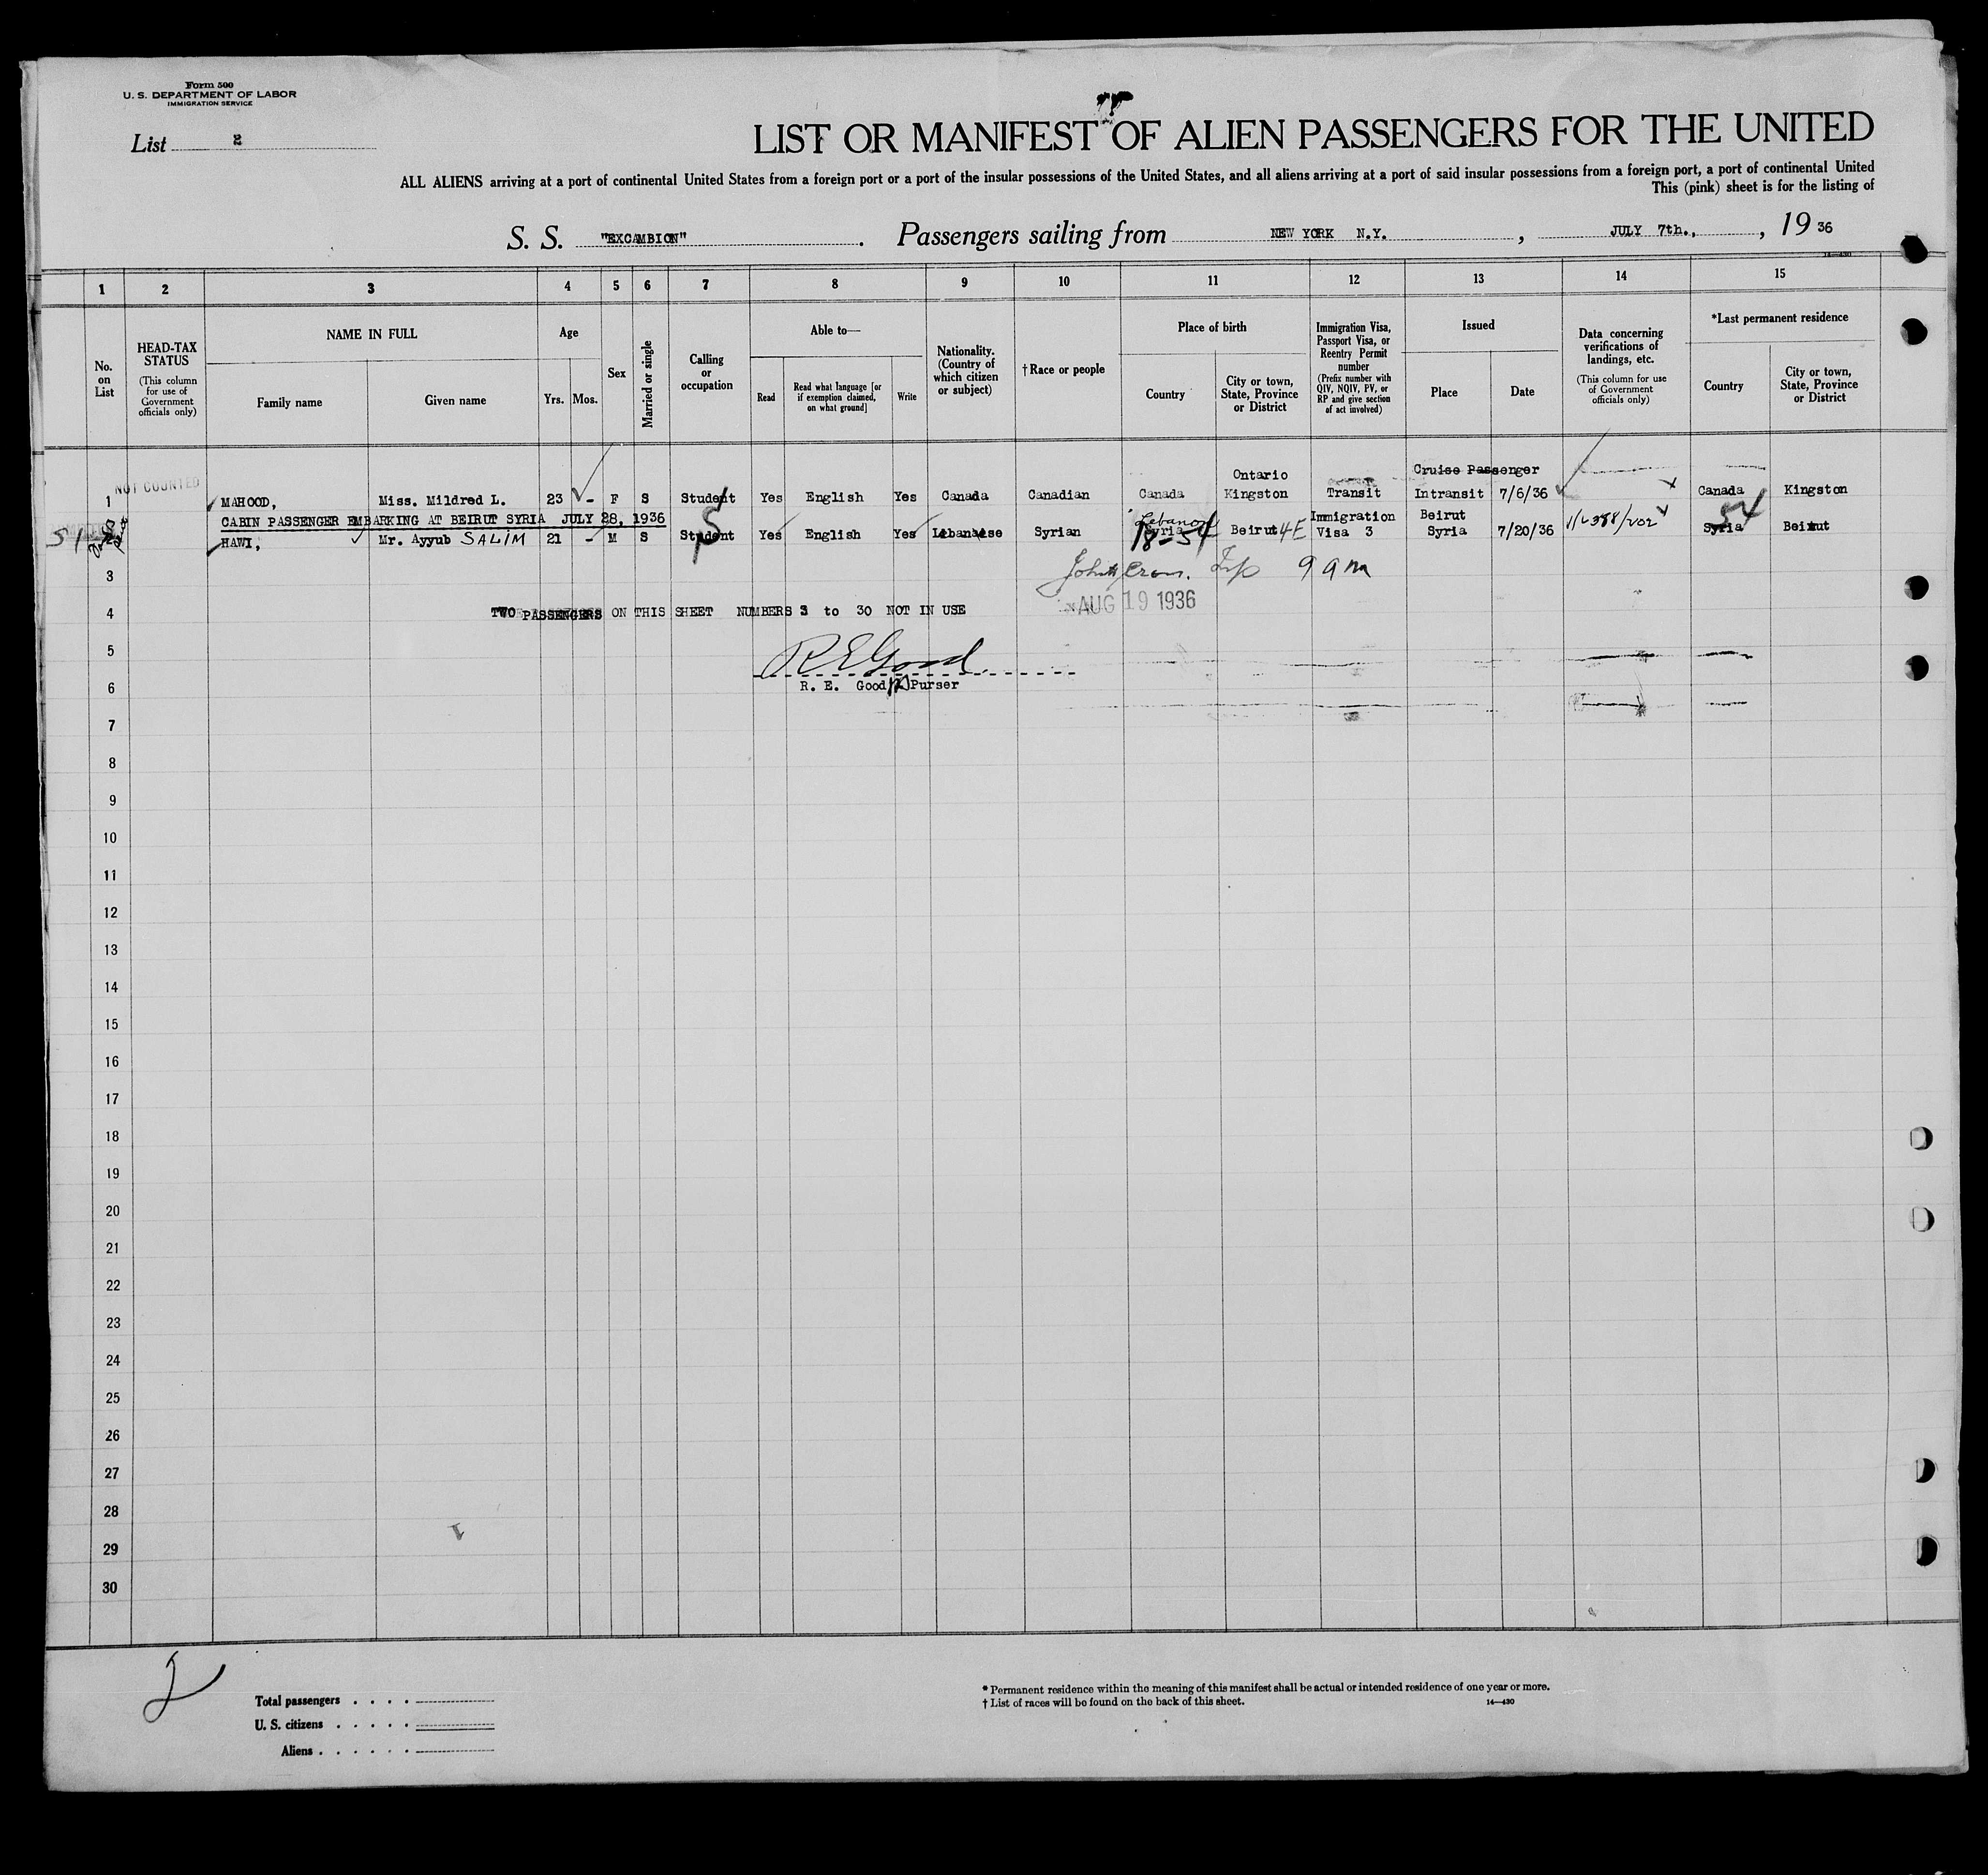 Form 500
U. S. DEPARTMENT OF LABOR
IMMIGRATION SERVICE
List 2
LIST OR MANIFEST OF ALIEN PASSENGERS FOR THE UNITED
ALL ALIENS arriving at a port of continental United States from a foreign port or a port of the insular possessions of the United States, and all aliens arriving at a port of said insular possessions from a foreign port, a port of continental United
This (pink) sheet is for the listing of
S. S. "EXCAMBION". Passengers sailing from NEW YORK N.Y., JULY 7th., , 19 36
14—430
1 2 3 4 5 6 7 8 9 10 11 12 13 14 15
No. on List
HEAD-TAX STATUS
(This column for use of Government officials only)
NAME IN FULL
Family name Given name
Age
Yrs. Mos.
Sex
Married or single
Calling or occupation
Able to—
Read
Read what language [or if exemption claimed, on what ground]
Write
Nationality. (Country of which citizen or subject)
† Race or people
Place of birth
Country
City or town, State, Province or District
Immigration Visa, Passport Visa, or Reentry Permit number
(Prefix number with QIV, NQIV, PV, or RP and give section of act involved)
Issued
Place Date
Data concerning verifications of landings, etc.
(This column for use of Government officials only)
*Last permanent residence
Country
City or town, State, Province or District
Ontario Cruise Passenger
NOT COUNTED
1 MAHOOD, Miss. Mildred L. 23 - F S Student Yes English Yes Canada Canadian Canada Kingston Transit Intransit 7/6/36 Canada Kingston
CABIN PASSENGER EMBARKING AT BEIRUT SYRIA JULY 28, 1936
Lebanon Immigration Beirut
HAWI, Mr. Ayyub SALIM 21 - M S Student Yes English Yes Lebanese Syrian Syria Beirut 4E Visa 3 Syria 7/20/36 Syria Beirut
18-54 54
3
9 am
AUG 19 1936
4 TWO PASSENGERS ON THIS SHEET NUMBERS 3 to 30 NOT IN USE
5
R E Good
6 R. E. Good Purser
7
8
9
10
11
12
13
14
15
16
17
18
19
20
21
22
23
24
25
26
27
28
29
30
2
Total passengers
U. S. citizens
Aliens
* Permanent residence within the meaning of this manifest shall be actual or intended residence of one year or more.
† List of races will be found on the back of this sheet.
14—430